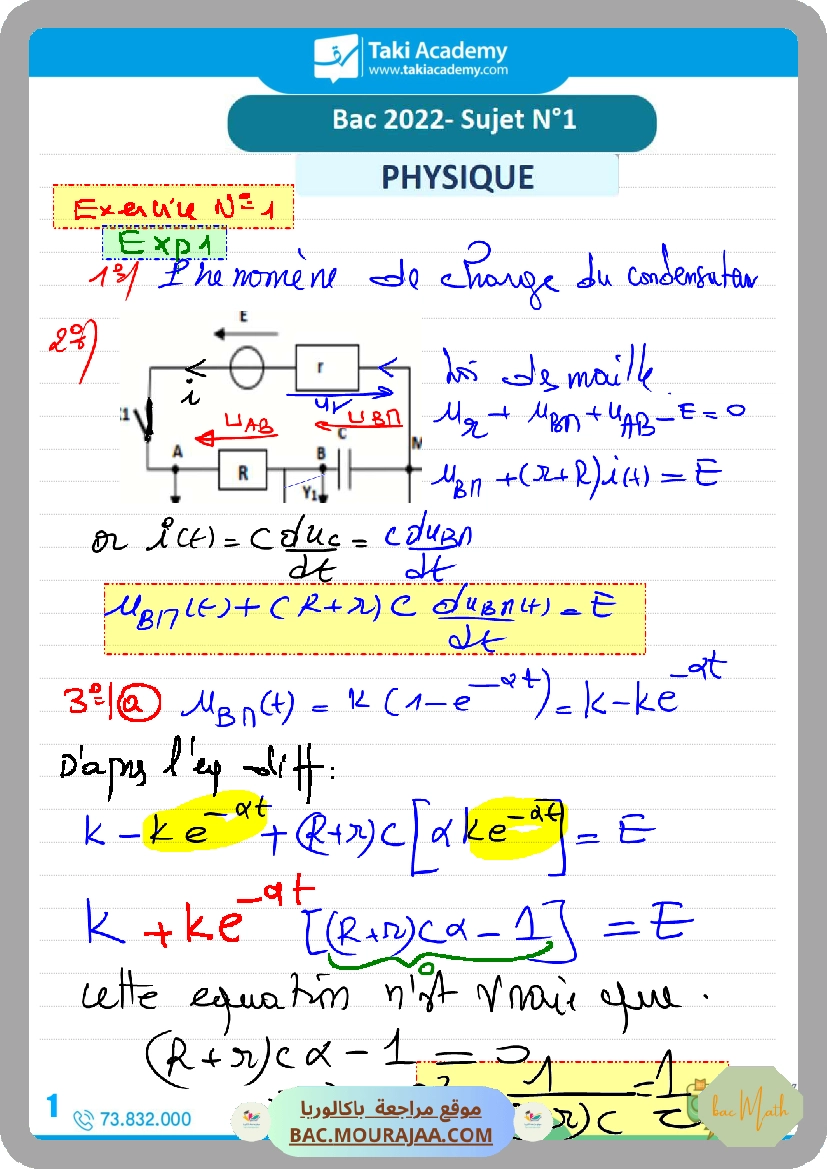 Taki Academy
www.takiacademy.com
Bac 2022- Sujet N°1
PHYSIQUE
Exercice N° 1
Exp 1
1°/ Phenomène de charge du condensateur
2°/
E
r
i
u_r
u_AB
u_BM
K1
A
R
B
C
M
Y1
Loi de maille
u_r + u_BM + u_AB - E = 0
u_BM + (r+R)i(t) = E
or i(t) = C du_C/dt = C du_BM/dt
u_BM(t) + (R+r) C du_BM(t)/dt = E
3°/ a u_BM(t) = K (1-e^-αt) = k-ke^-αt
D'aprs l'eq diff:
k - ke^-αt + (R+r)C[αke^-αt] = E
k + ke^-αt [(R+r)Cα - 1] = E
0
cette equation n'est vraie que .
(R+r)Cα - 1 = 0
1
73.832.000
موقع مراجعة باكالوريا
BAC.MOURAJAA.COM
bac Math